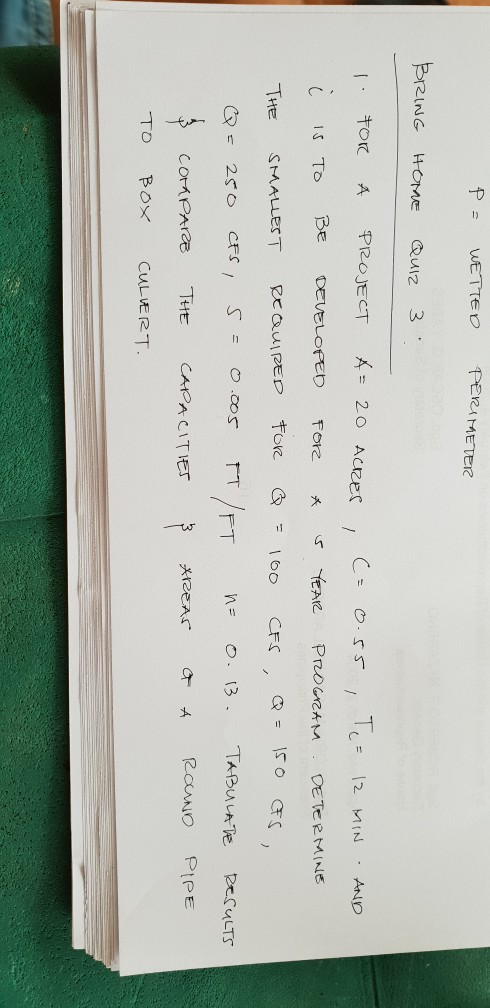 P = WETTED PERIMETER
BRING HOME QUIZ 3.
1. FOR A PROJECT A = 20 ACRES, C = 0.55, Tc = 12 MIN. AND
i IS TO BE DEVELOPED FOR A 5 YEAR PROGRAM. DETERMINE
THE SMALLEST REQUIRED FOR Q = 100 CFS, Q = 150 CFS,
Q = 250 CFS, S = 0.005 FT/FT n = 0.13. TABULATE RESULTS
& COMPARE THE CAPACITIES & AREAS OF A ROUND PIPE
TO BOX CULVERT.